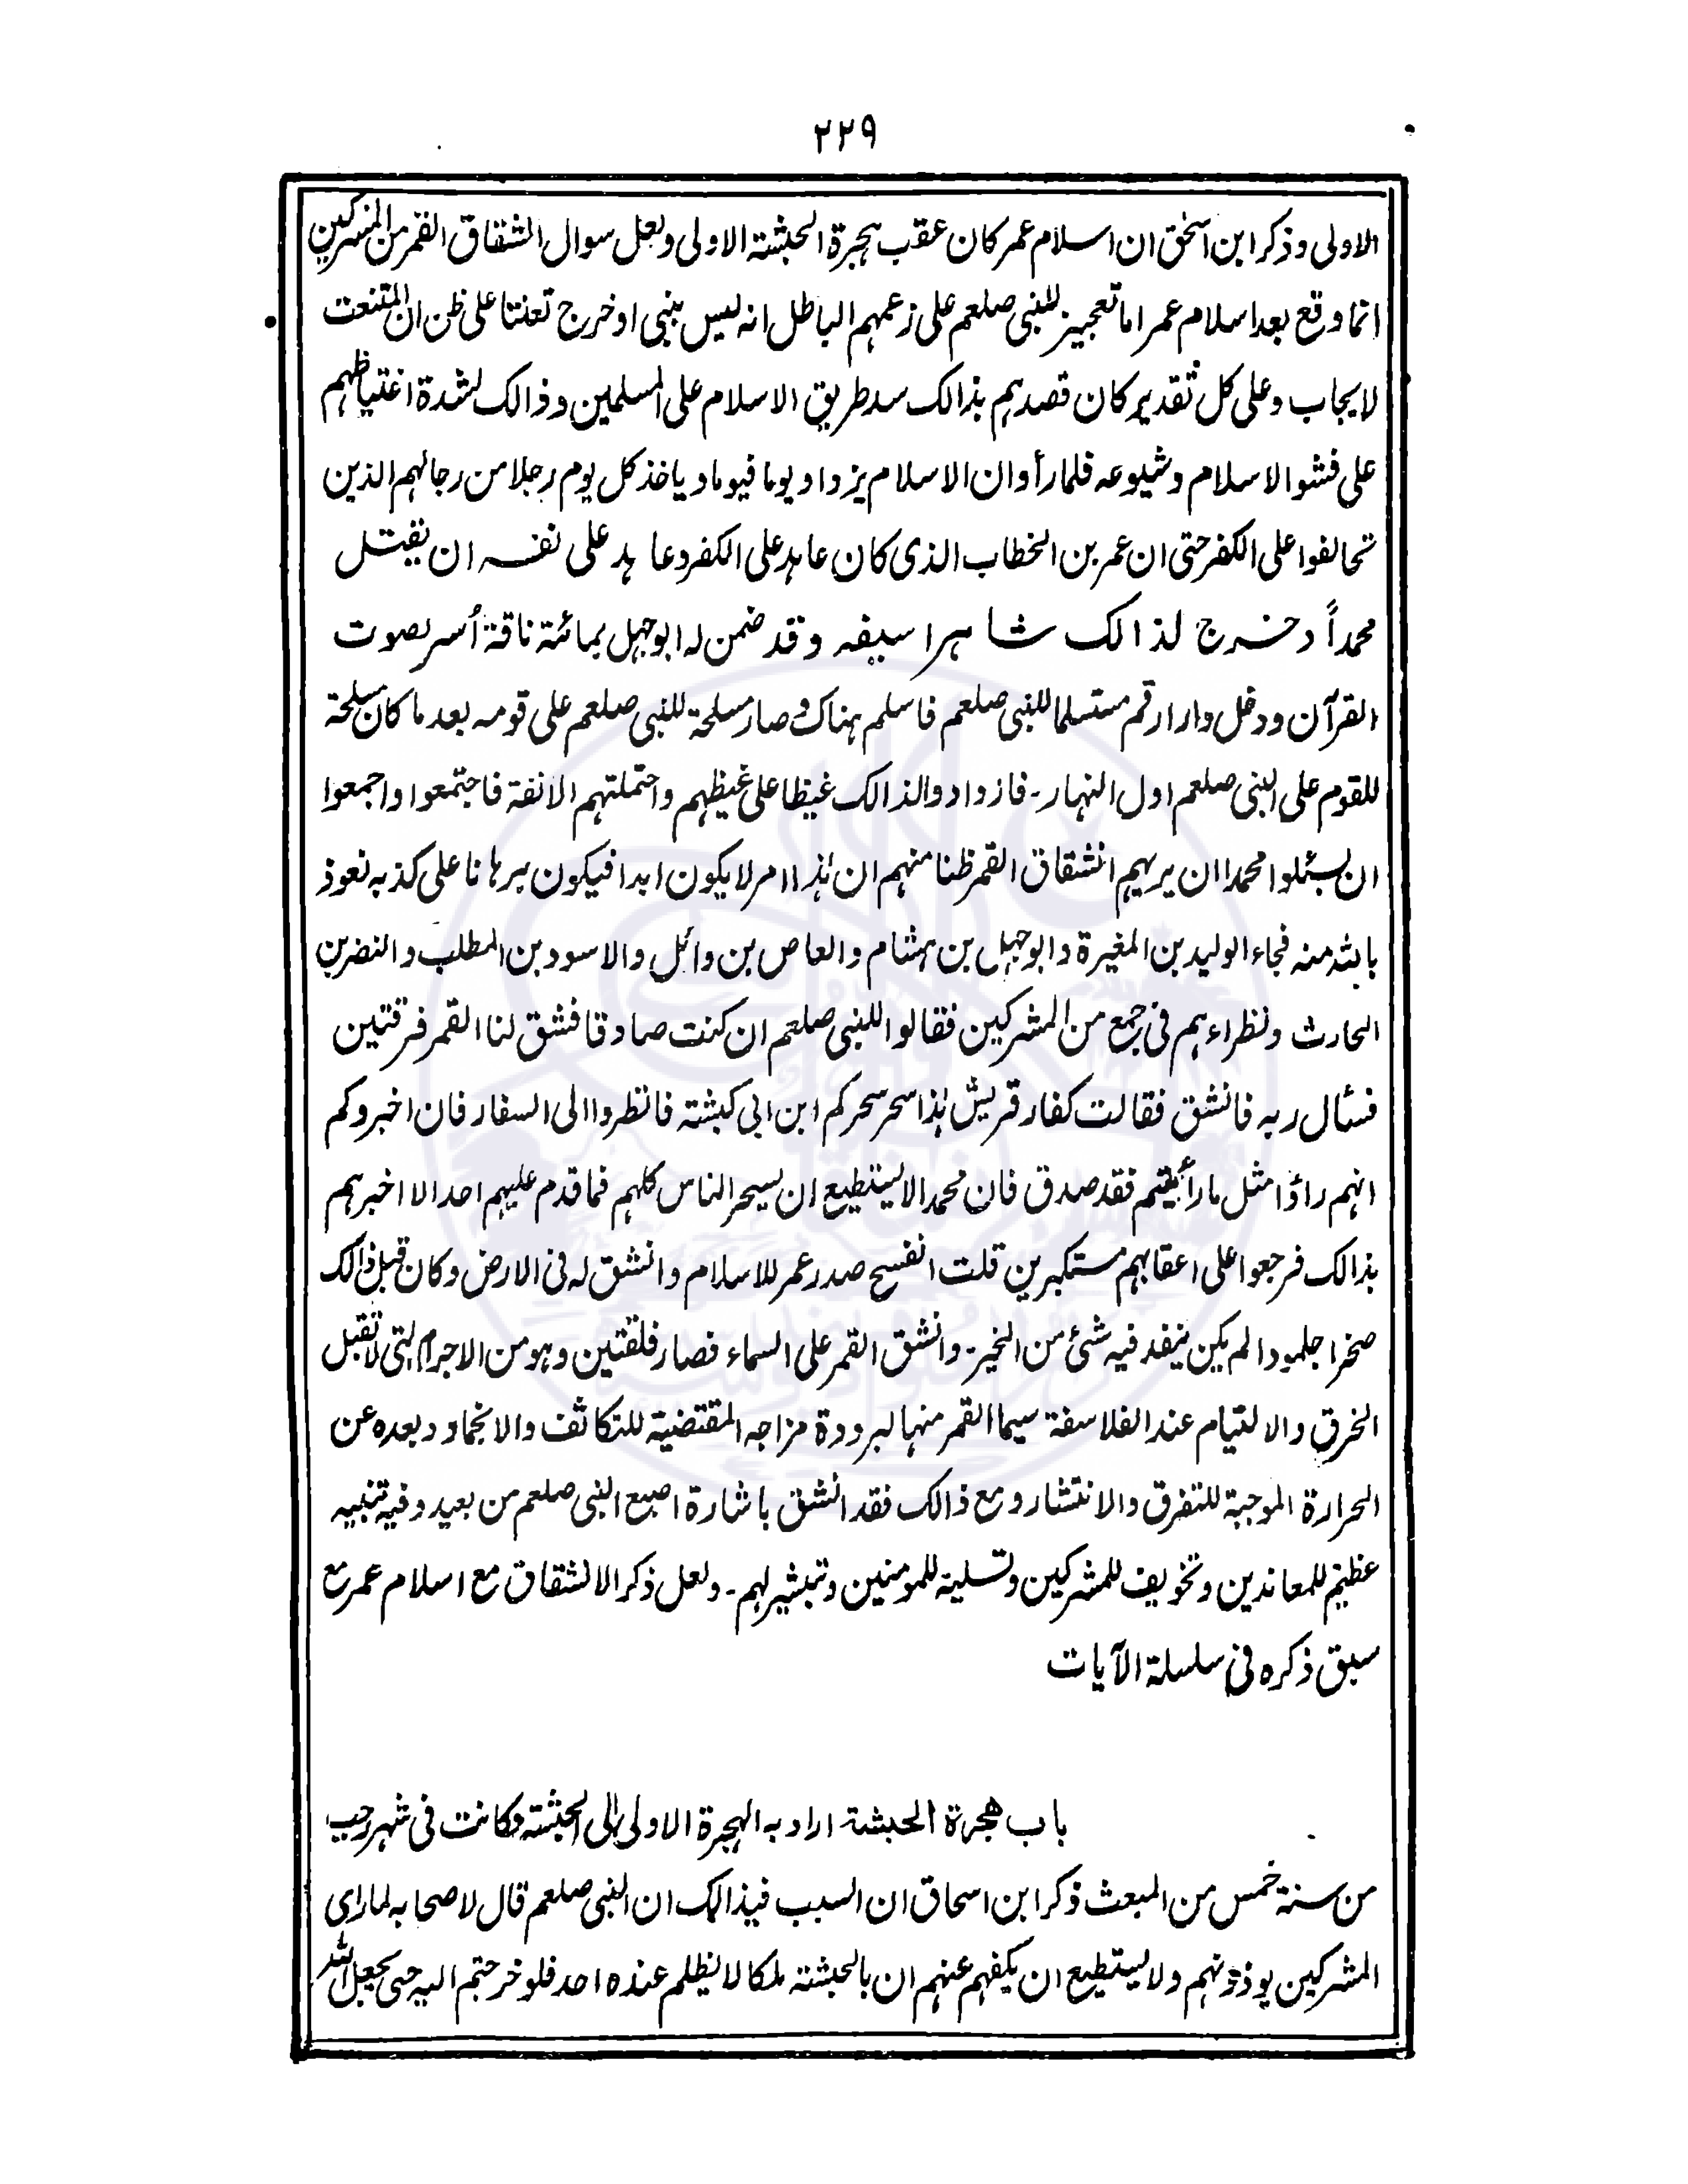 ٢٢٩
الاولى وذكر ابن اسحق ان اسلام عمر كان عقب هجرة الحبشة الاولى ولعل سوال انشقاق القمر من المشركين
انما وقع بعد اسلام عمر اما تعجيز للنبي صلعم على زعمهم الباطل انه ليس بنبي او خرج تعنتا على ظن ان المتنعت
لا يجاب وعلى كل تقدير كان قصدهم بذالك سد طريق الاسلام على المسلمين وذالك لشدة اغتياظهم
على فشو الاسلام وشيوعه فلما رأوا ان الاسلام يزداد يوما فيوما و ياخذ كل يوم رجلا من رجالهم الذين
تحالفوا على الكفر حتى ان عمر بن الخطاب الذى كان عاهد على الكفر وعاهد على نفسه ان يقتل
محمداً وخرج لذالك شاهرا سيفه وقد ضمن له ابو جهل بمائة ناقة أسر بصوت
القرآن ودخل دار ارقم مستسلما للنبي صلعم فاسلم هناك وصار مسلحة للنبي صلعم على قومه بعد ما كان مسلحة
للقوم على النبي صلعم اول النهار۔ فازدادوا لذالك غيظا على غيظهم واحتملتهم الانفة فاجتمعوا واجمعوا
ان يسئلوا محمدا ان يريهم انشقاق القمر ظنا منهم ان هذا امر لا يكون ابدا فيكون برهانا على كذبه نعوذ
بالله منه فجاء الوليد بن المغيرة وابوجهل بن هشام والعاص بن وائل والاسود بن المطلب والنضر بن
الحارث ونظراءهم في جمع من المشركين فقالوا للنبي صلعم ان كنت صادقا فشق لنا القمر فرقتين
فسئال ربه فانشق فقالت كفار قريش هذا سحر سحركم ابن ابى كبشته فانظروا الى السفار فان اخبروكم
انهم راؤا مثل ما رأيتم فقد صدق فان محمدا لا يستطيع ان يسحر الناس كلهم فما قدم عليهم احد الا اخبرهم
بذالك فرجعوا على اعقابهم مستكبرين قلت انفسح صدر عمر للاسلام وانشق له فى الارض وكان قبل ذالك
صخرا جلمودا لم يكن ينفد فيه شئ من الخير۔ وانشق القمر على السماء فصار فلقتين وهو من الاجرام التى لا تقبل
الخرق والالتيام عند الفلاسفة سيما القمر منها لبرودة مزاجه المقتضية للتكاثف والانجماد وبعده عن
الحرارة الموجبة للتفرق والانتشار ومع ذالك فقد انشق باشارة اصبع النبي صلعم من بعيد وفيه تنبيه
عظيم للمعاندين وتخويف للمشركين وتسلية للمومنين وتبشير لهم۔ ولعل ذكر الانشقاق مع اسلام عمر مع
سبق ذكره فى سلسلة الآيات
باب هجرة الحبشة اراد به الهجرة الاولى الى الحبشته وكانت فى شهر رجب
من سنة خمس من المبعث ذكر ابن اسحاق ان السبب فيذالك ان النبي صلعم قال لاصحابه لما راى
المشركين يوذونهم ولا يستطيع ان يكفهم عنهم ان بالحبشته ملكا لا يظلم عنده احد فلو خرجتم اليه حتى يجعل الله